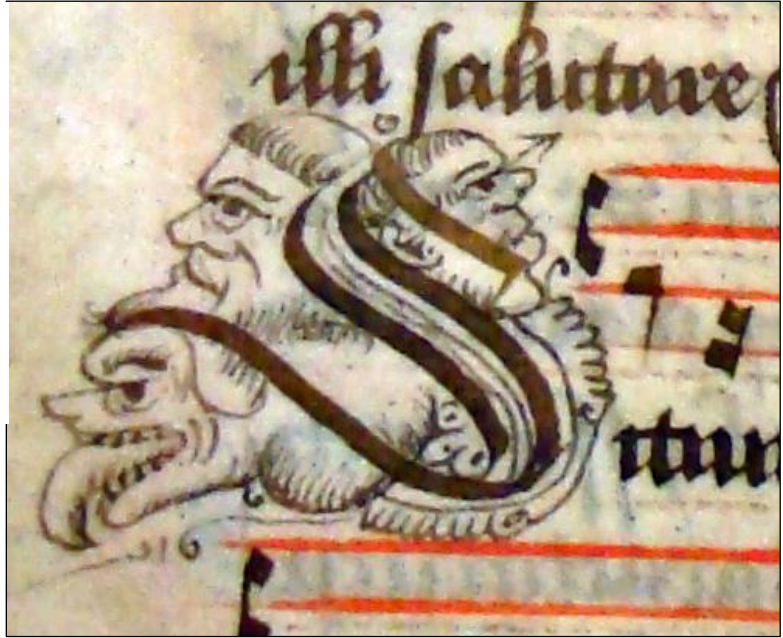 illi ſalutare
Sitiui